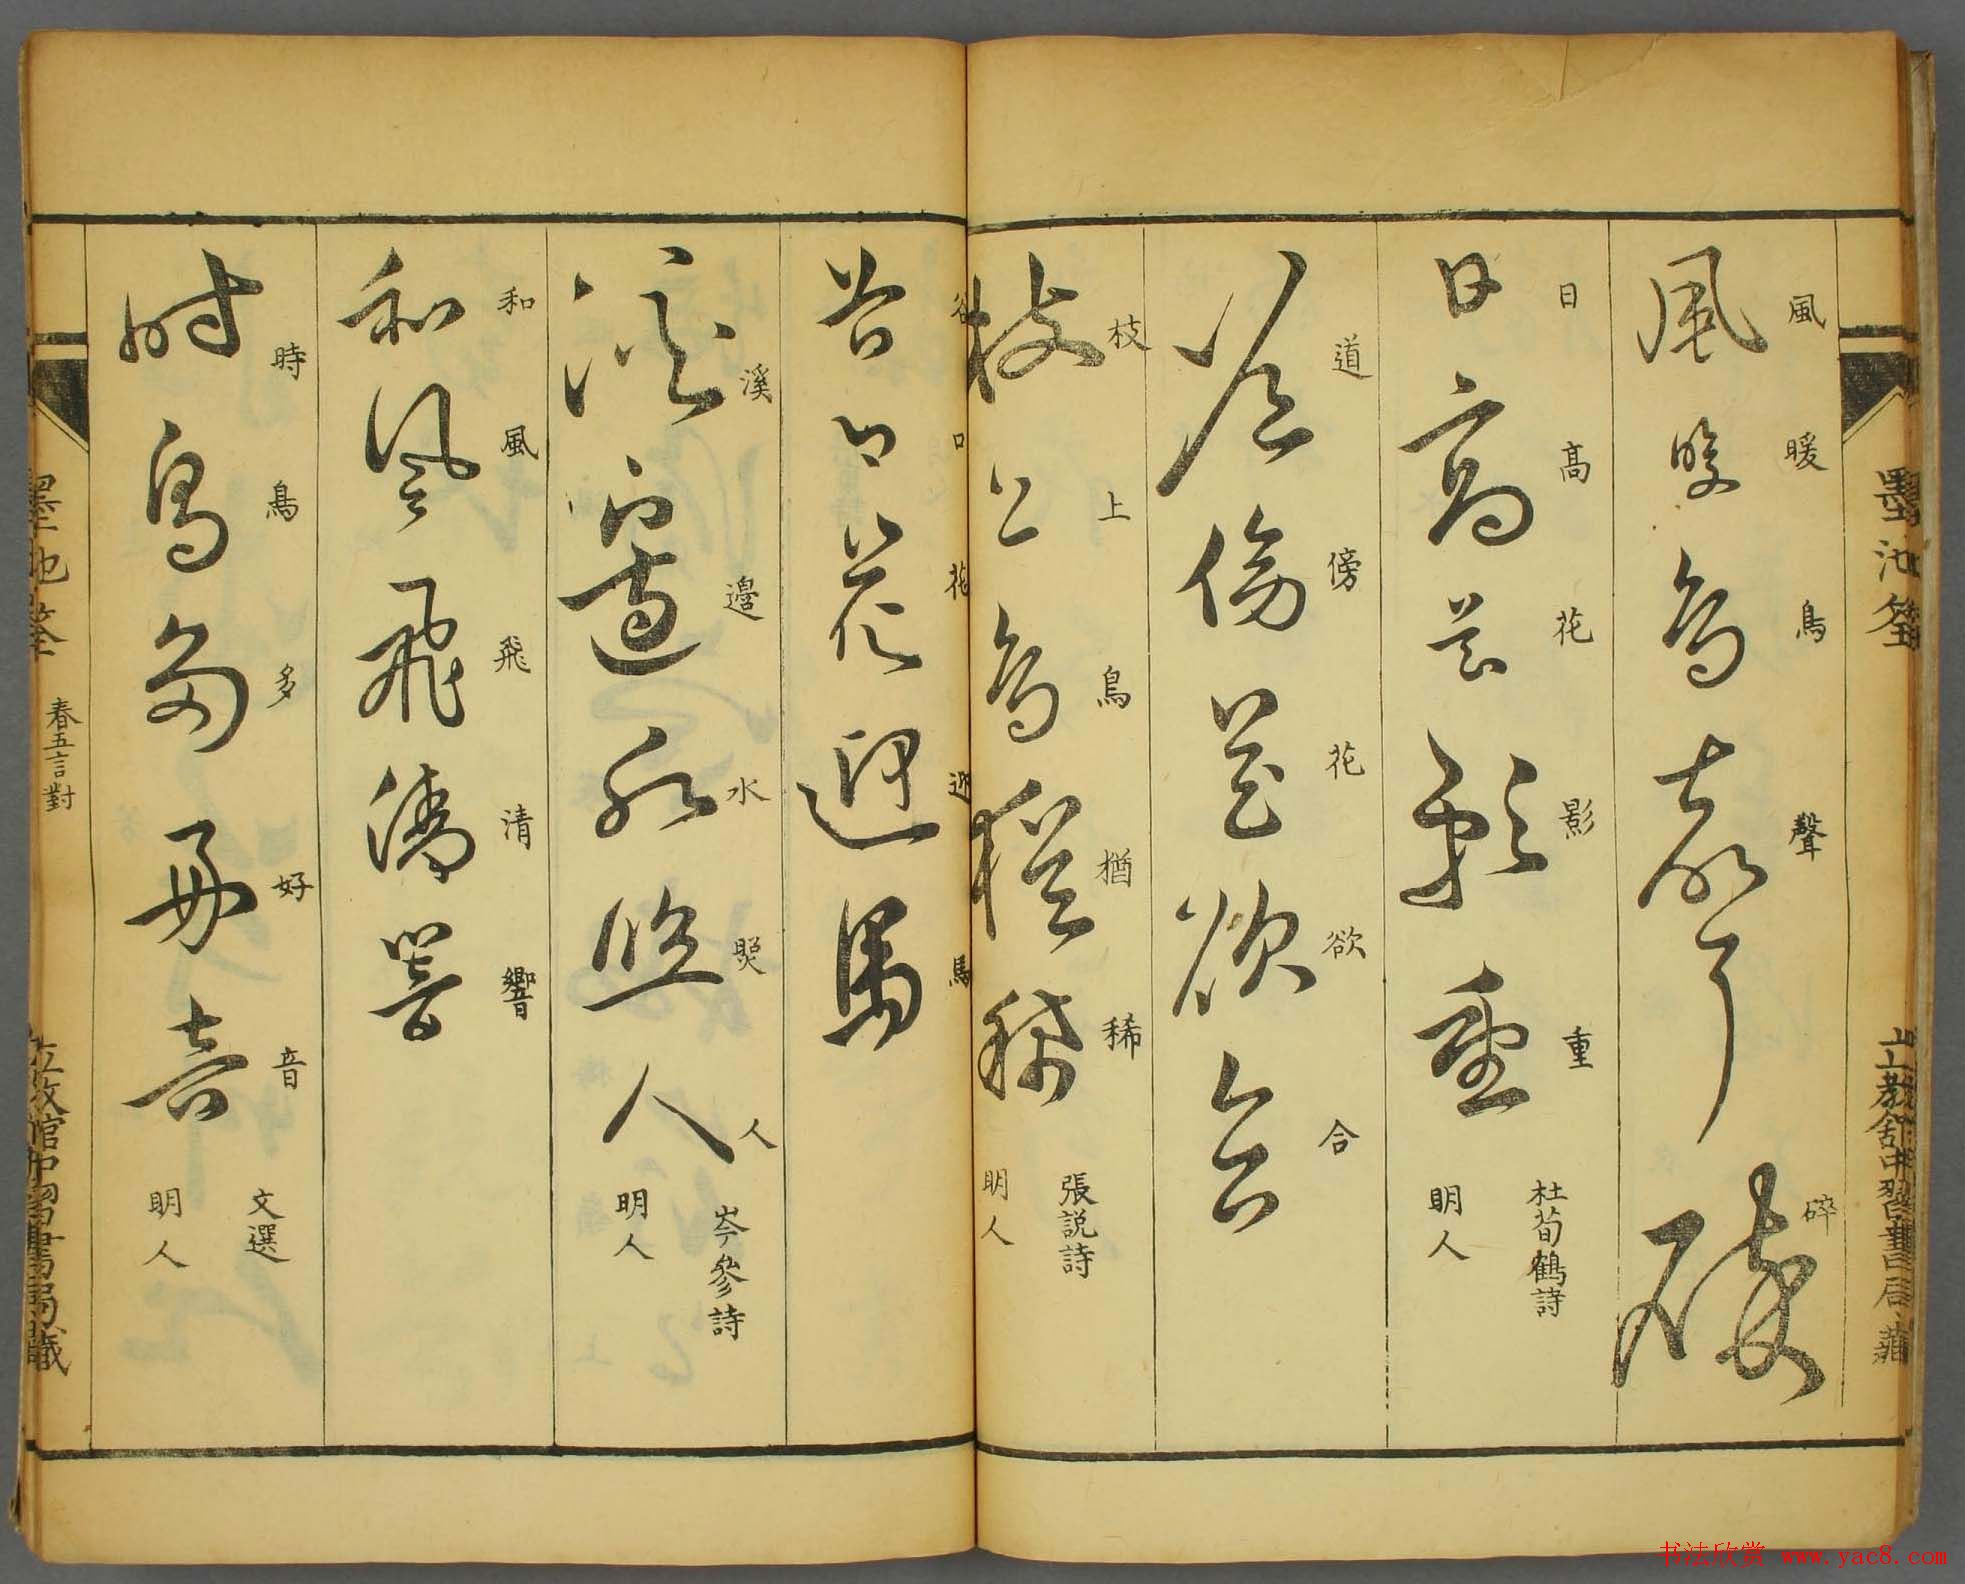 墨池筌
立教館中習書局藏
風暖鳥聲碎
風暖鳥聲碎
日高花影重
日高花影重
杜荀鶴詩
明人
道傍花欲合
道傍花欲合
枝上鳥猶稀
枝上鳥猶稀
張説詩
明人
谷口花迎馬
谷口花迎馬
溪邊水照人
溪邊水照人
岑參詩
明人
和風飛清響
和風飛清響
時鳥多好音
時鳥多好音
文選
明人
墨池筌
春五言對
立教館中習書局藏
书法欣赏 www.yac8.com